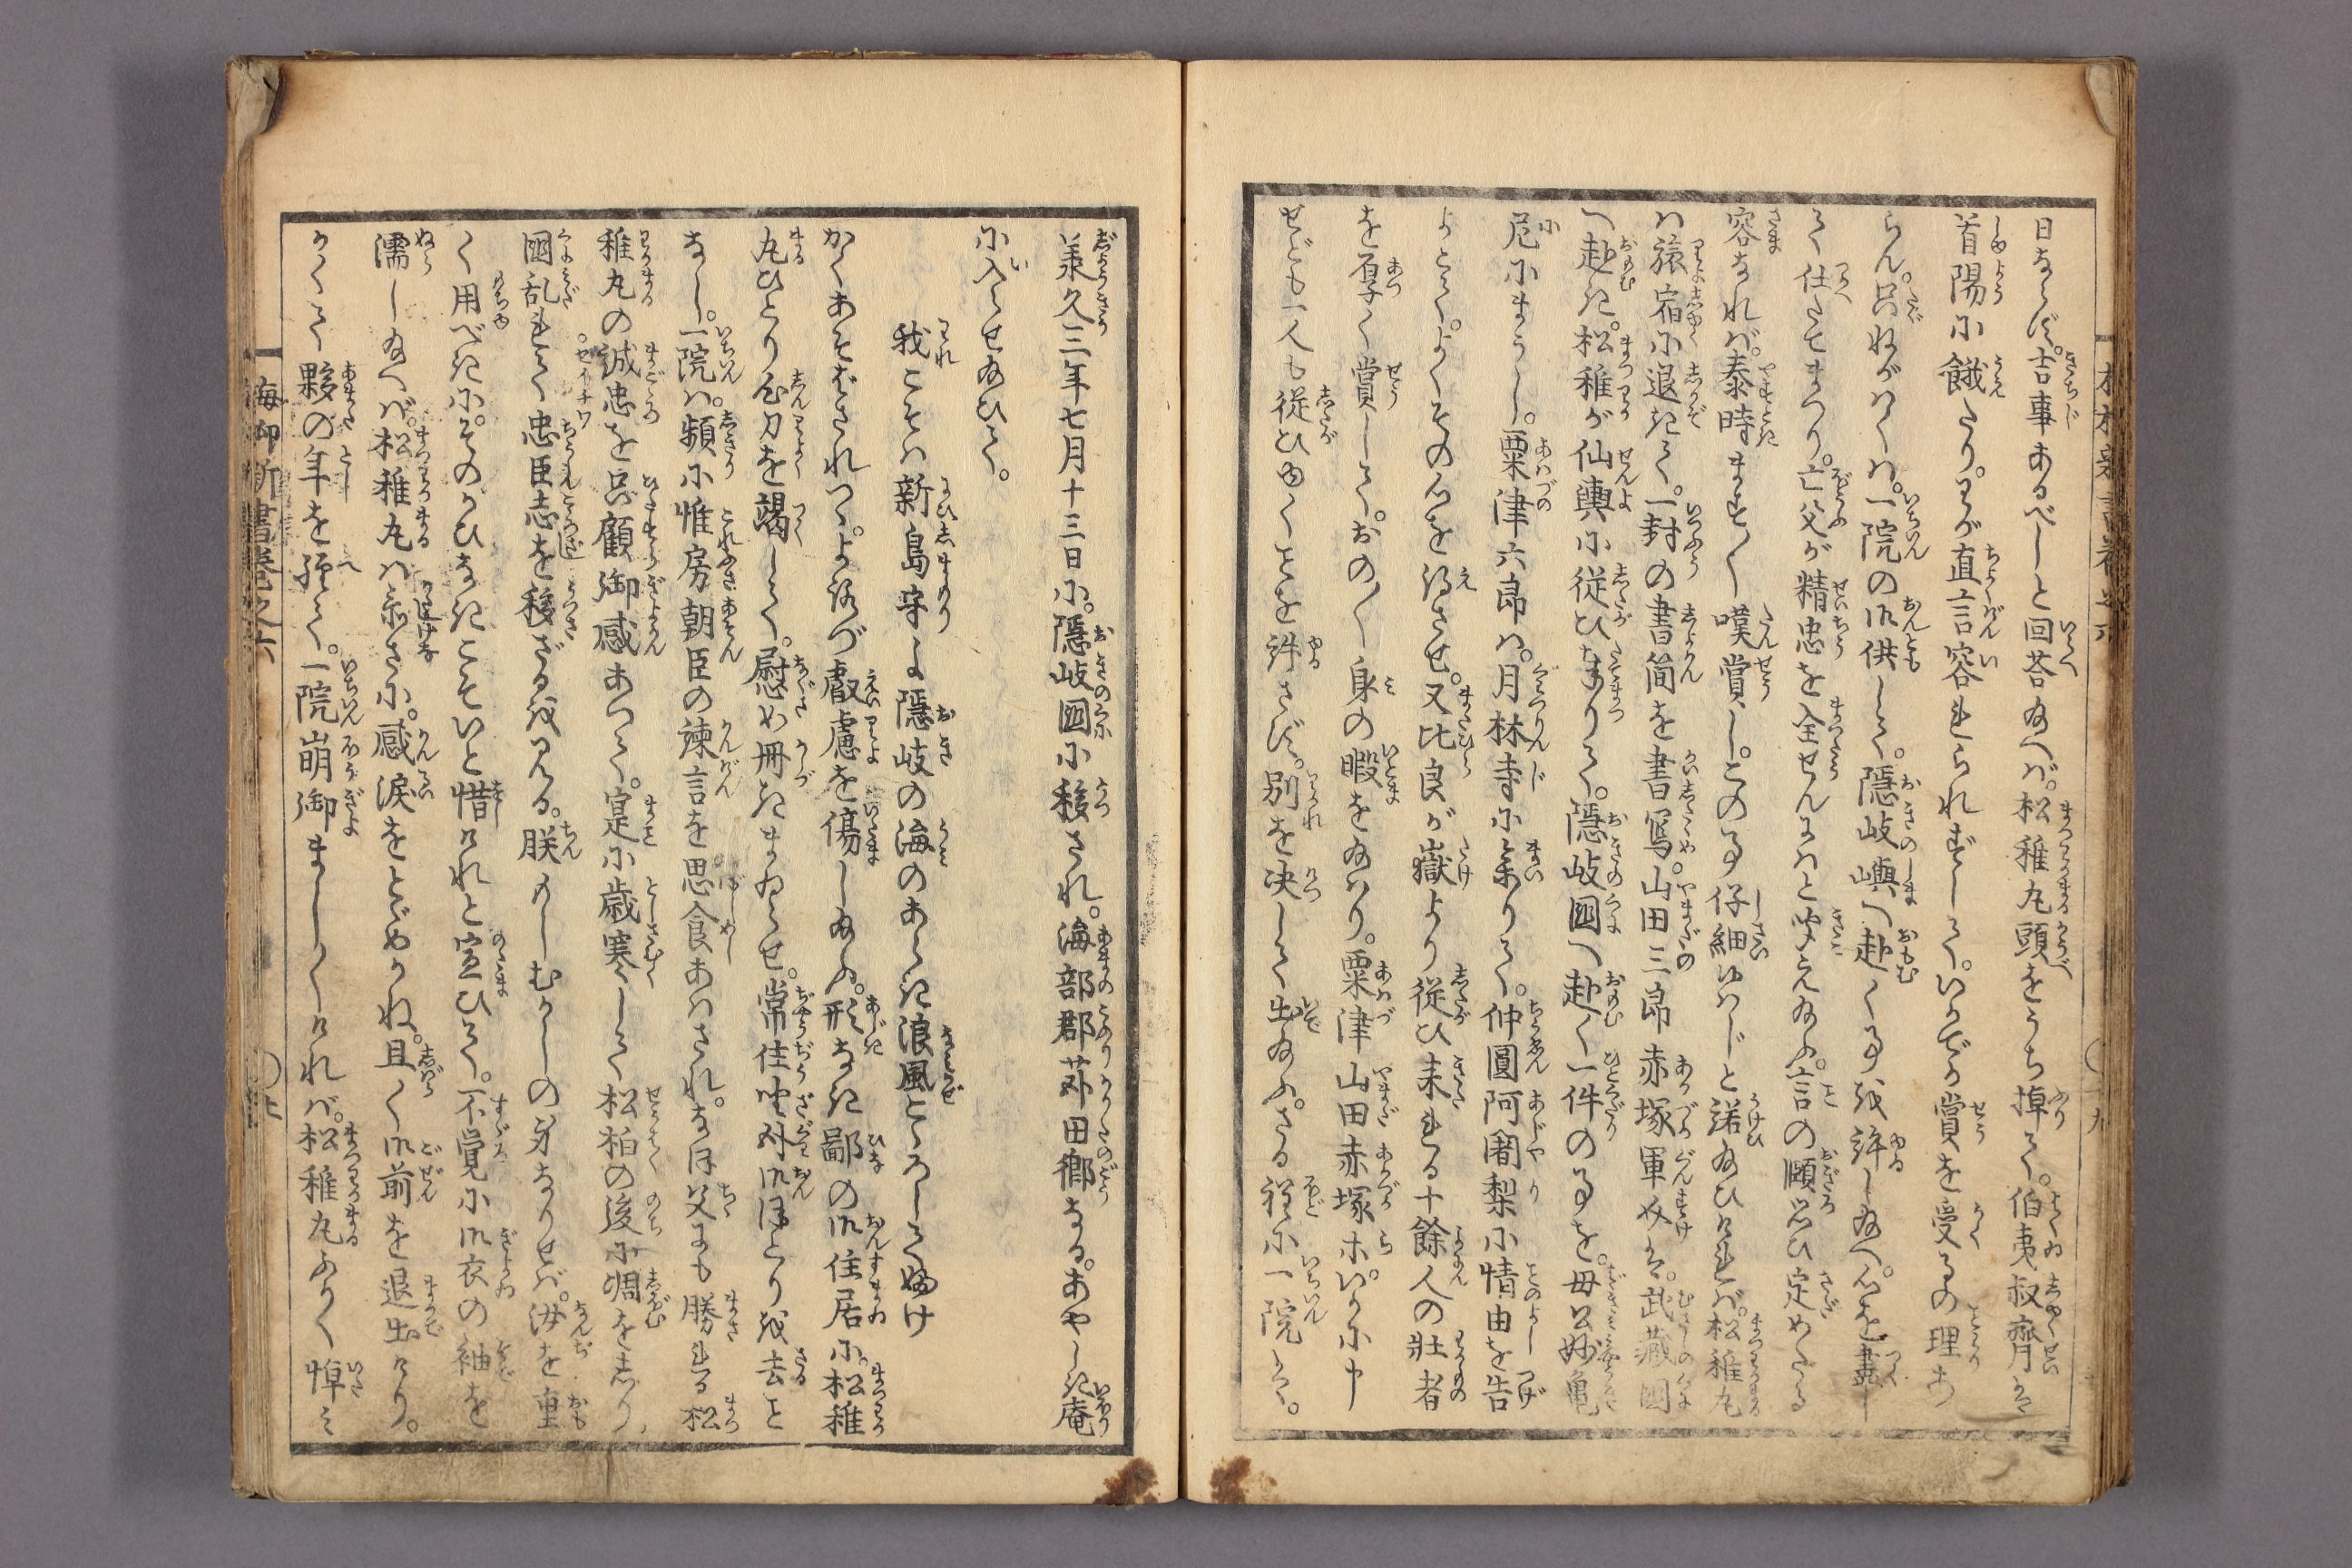 日ならず。吉事あるべしと回答給へば。松稚丸頭をうち掉て。伯夷叔齊は
首陽に餓たり。わが直言容られずして。いかでか賞を受るの理あ
らん。只ねがはくは。一院の御供して。隠岐嶼へ赴く事を許し給へ。心を盡し
て仕たてまつり。亡父が精忠を全せんにはと聞え給ふ。言の願思ひ定めたる
容なれば。泰時ます〳〵嘆賞し。この事仔細はじと諾給ひければ。松稚丸
は旅宿に退きて。一封の書简を書写。山田三郎赤塚軍介は。武藏國
へ赴き。松稚が仙輿に従ひまつりて。隠岐國へ赴く一件の事を。母公妙亀
尼にまうし。粟津六郎は。月林寺に参りて。仲圓阿闍梨に情由を告
よとて。よくその心を得させ。又比良が嶽より従ひ来れる十餘人の壮者
を厚く賞して。おの〳〵身の暇を給はり。粟津山田赤塚ホ。いかに申
せども一人も従ひゆくことを許さず。別を决して出給ふ。さる程に一院は。
承久三年七月十三日に。隠岐國に移され。海部郡苅田郷なる。あやしき庵
に入らせ給ひて。
我こそは新島守よ隠岐の海のあらき浪風こゝろしてふけ
かくあそばされつゝ。よろづ叡慮を傷しめ給ふ。形なき鄙の御住居に。松稚
丸ひとり心力を竭して。慰め冊きまゐらせ。常住坐臥御ほとりを去こと
なし。一院は。頻に惟房朝臣の諫言を思食あはされ。なほ父にも勝れる松
稚丸の誠忠を只顧御感あつて。寔に歳寒くして松柏の後に凋をしり
國乱れて忠臣志を移ざるを見る。朕もしむかしの身なりせば。汝を重
く用べきに。そのかひなきこそいと惜けれと宣ひて。不覚に御衣の袖を
濡し給へば。松稚丸は忝さに。感涙をとゞめかね。且く御前を退出けり。
かくて夥の年を経て。一院崩御ましましければ。松稚丸ふかく悼み
海御新書巻之六